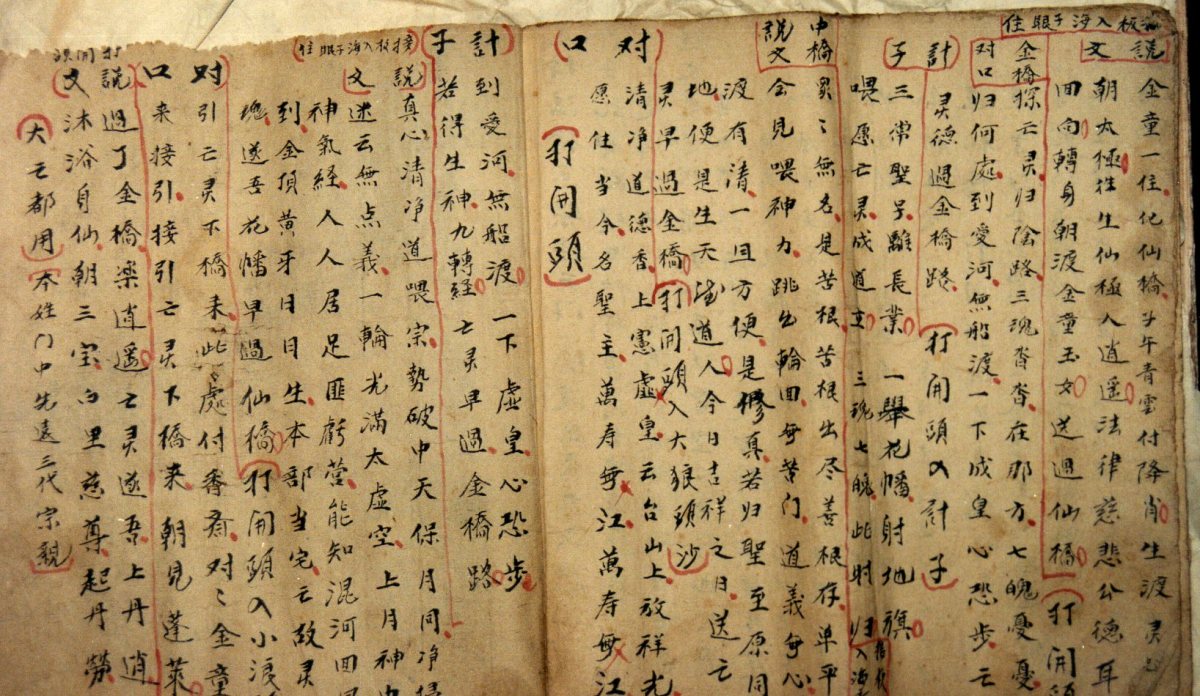 板入海子眼住
説文
金童一住化仙橋子午青雲付降肖生渡灵
朝太極性生仙極人逍遥法律慈悲公德耳
回向轉身朝渡金童玉女送過仙橋打開
金橋
对口
探亡灵归陰路三魂沓沓在那方七魄憂憂
归何處到愛河無船渡一下成皇心恐步亡
灵德過金橋路打開頭入計子
計子
三常聖号離長業一舉花幡射地旗
喂愿亡灵成道立三魂七魄此时归
中橋
説文
眾無名是苦根苦根出尽善根存单平
会見喂神力跳出輪回每苦门道義每心
渡有清一且方便是修真若归聖至原同
地便是生天道人今日吉祥之日送亡
灵早過金橋打開頭入大狼頭沙
对口
清净道德香上憲虚皇云台山上放祥光
愿住当今名聖主萬寿每江萬寿每江
打開頭
計子
到愛河無船渡一下虚皇心恐步
若得生神九轉経亡灵早過金橋路
接板入海子眼住
説文
真心清净道喂宗勢破中天保月同净
迷云無点義一輪光滿太虚空上月神
神氣経人人居足匪虧営能知混河回
到金頂黄牙日日生本部当宅亡故灵
魂送吾花幡早過仙橋打開頭入小渡
对口
引亡灵下橋来此處付香斎对金童
来接引接引亡灵下橋来朝見蓬莱
打開頭
説文
過了金橋楽逍遥亡灵遂吾上丹逍
沐浴身仙朝三宝白里慈尊起丹勞
大亡都用本姓门中先遠三代宗親